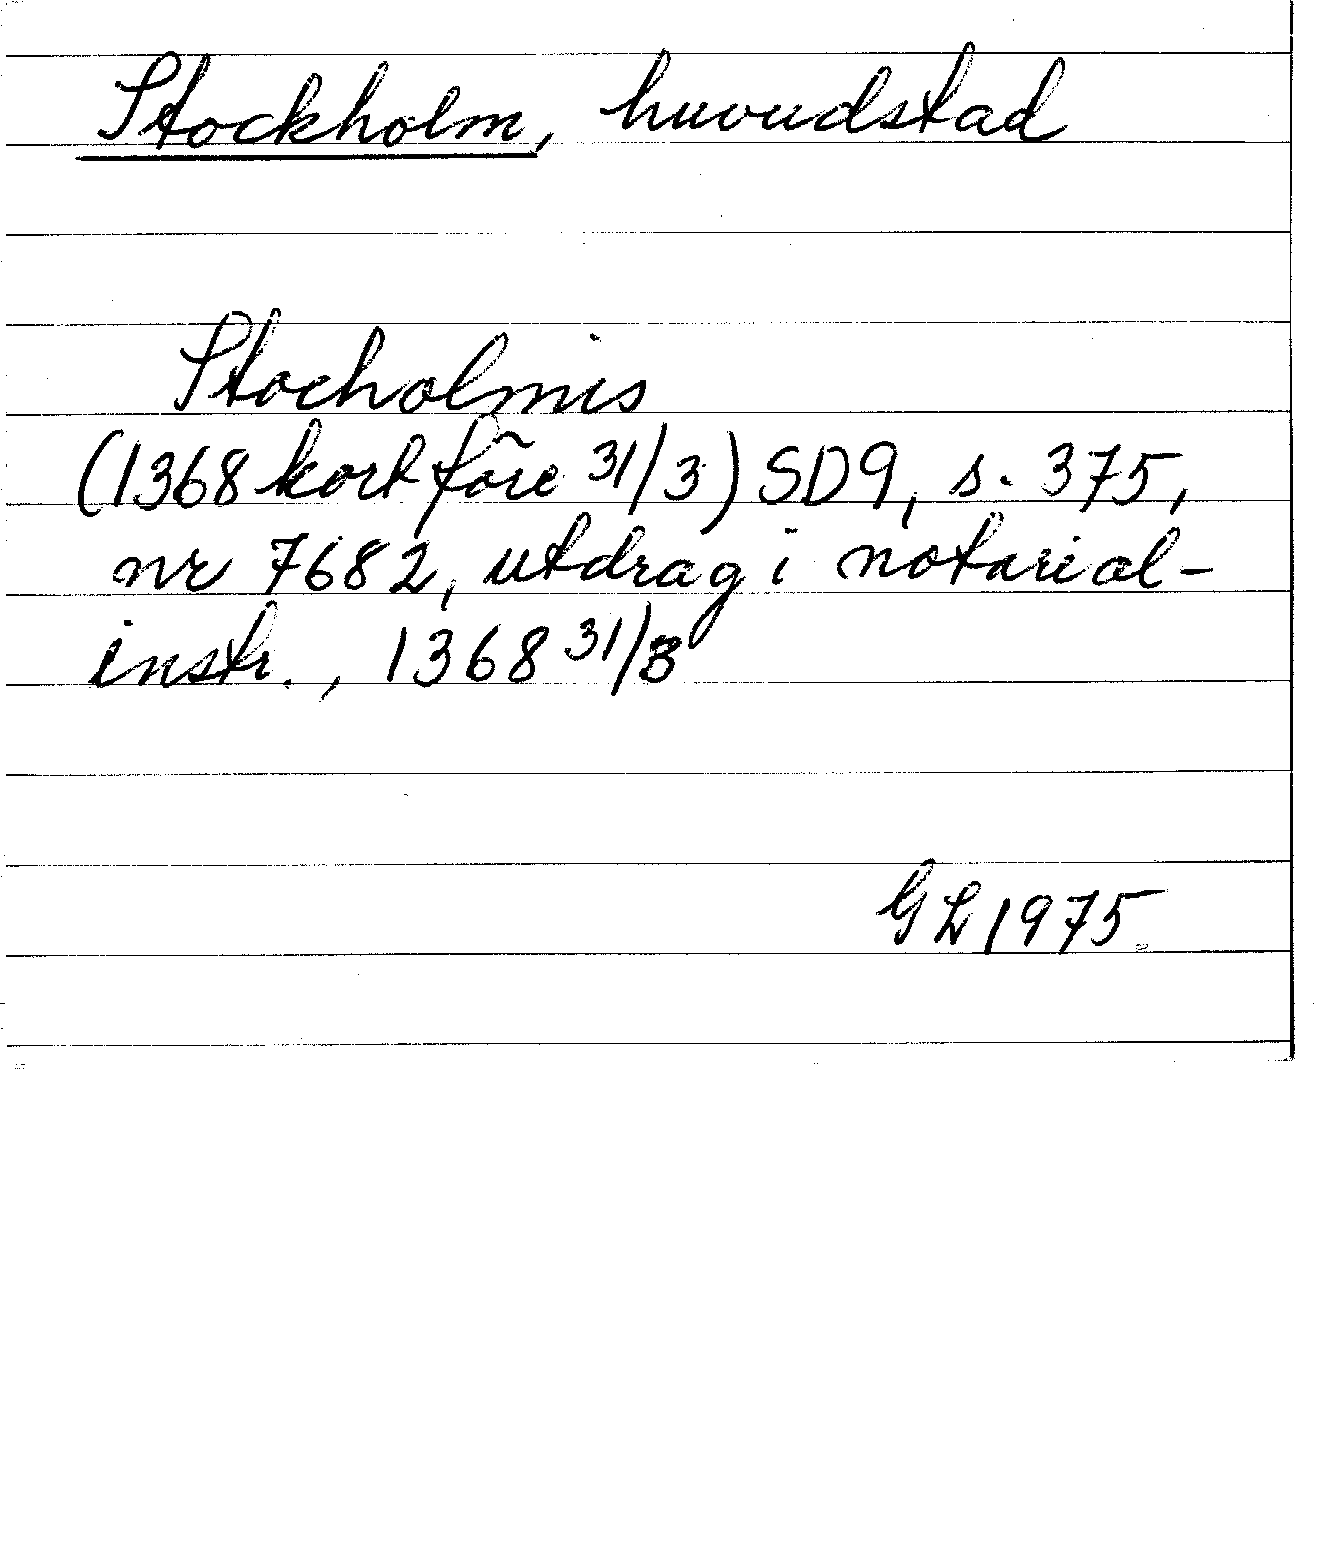 Stockholm, huvudstad
Stocholmis
(1368 kort före 31/3) SD9, s. 375,
nr 7682, utdrag i notarial-
instr., 1368 31/3
GL 1975